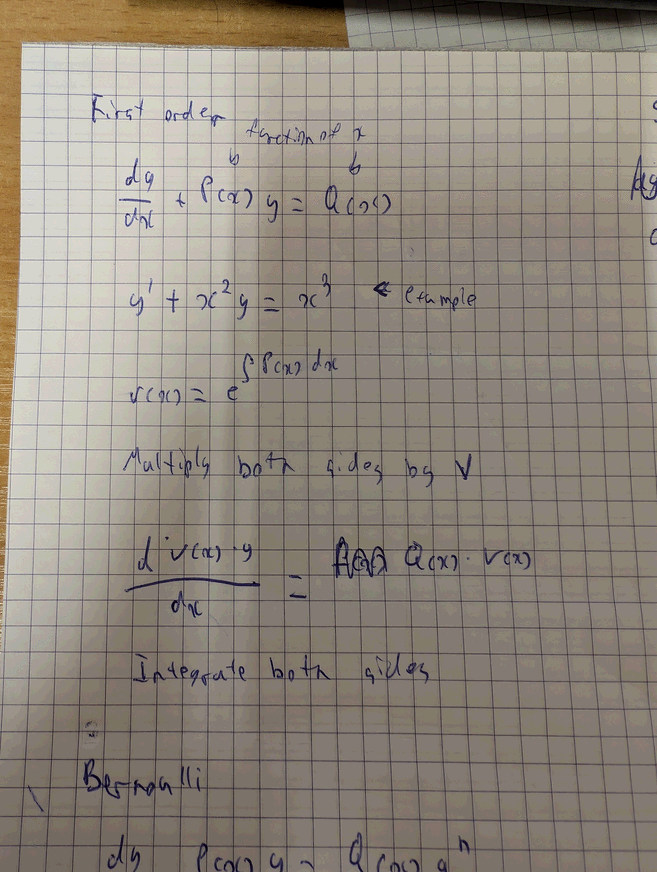 First order
function of x
dy/dx + P(x) y = Q(x)
y' + x² y = x³ ← example
v(x) = e^∫P(x) dx
Multiply both sides by V
d v(x)·y / dx = Q(x)· v(x)
Integrate both sides
Bernoulli
dy P(x) y = Q(x) y^n